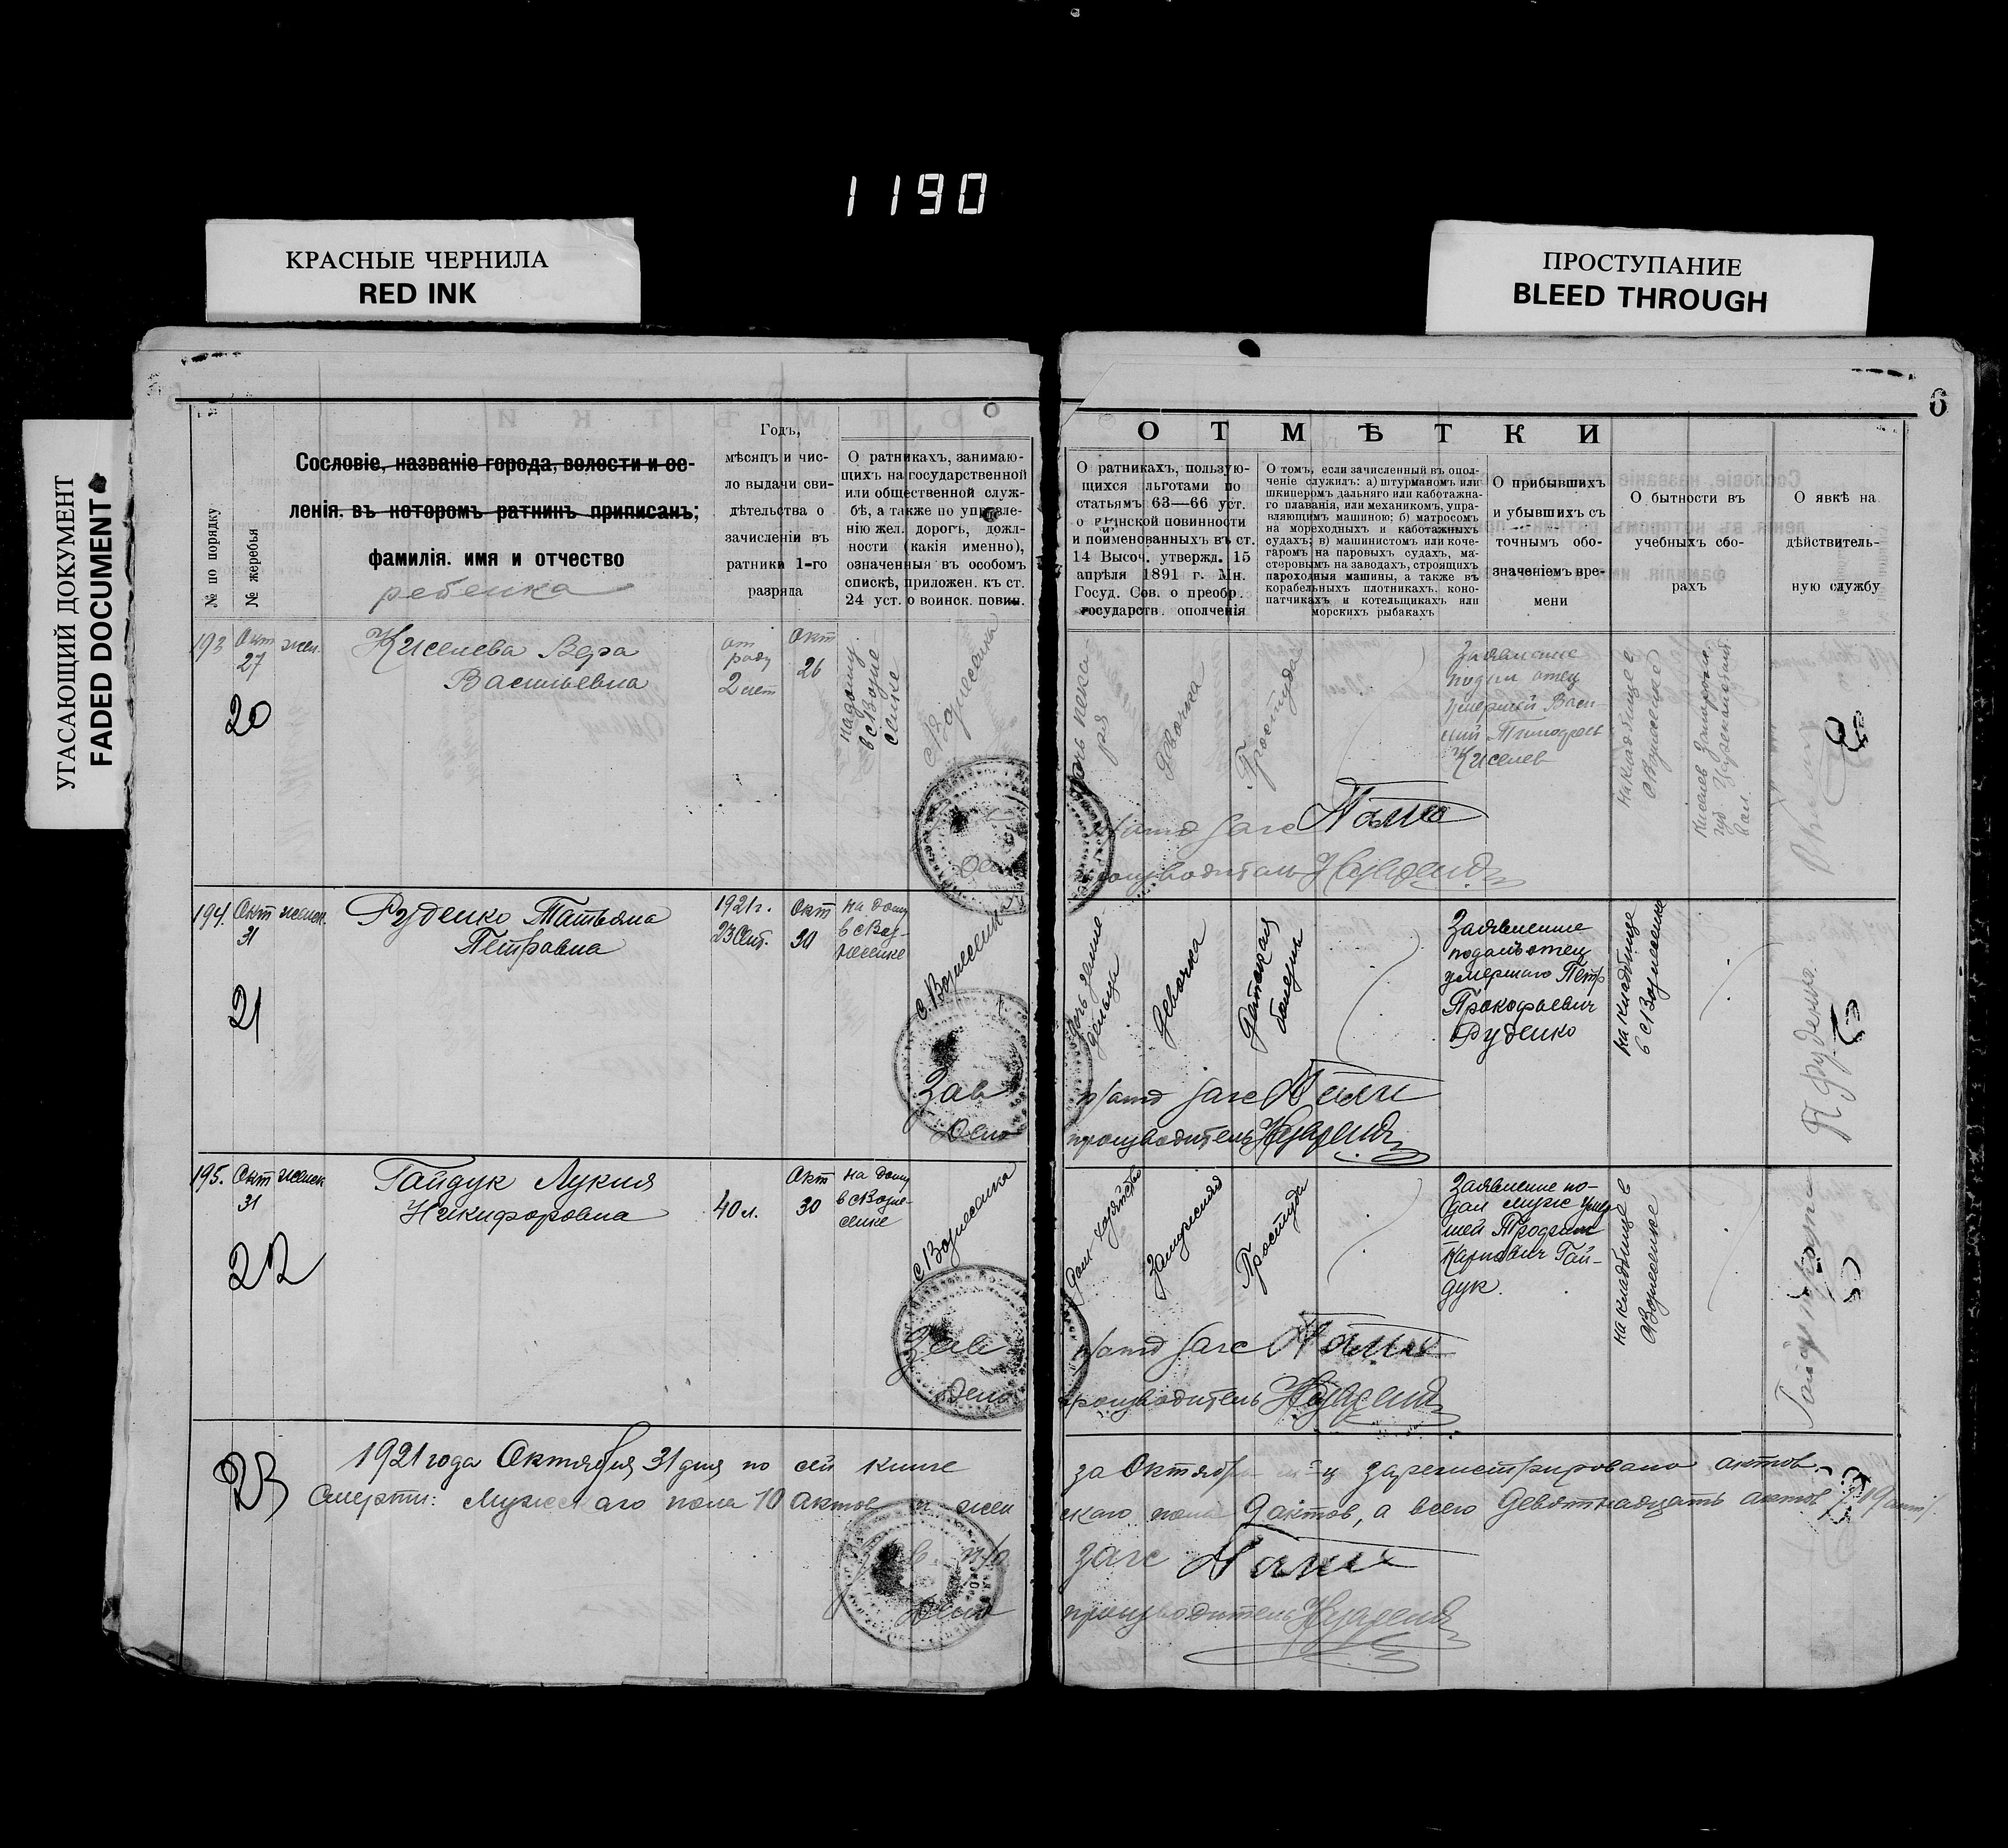 1190
КРАСНЫЕ ЧЕРНИЛА
RED INK
ПРОСТУПАНИЕ
BLEED THROUGH
УГАСАЮЩИЙ ДОКУМЕНТ
FADED DOCUMENT
№ по порядку
№ жеребья
Сословіе, названіе города, волости и се-
ленія. въ которомъ ратникъ приписанъ;
фамилія. имя и отчество
ребенка
Годъ,
мѣсяцъ и чис-
ло выдачи сви-
дѣтельства о
зачисленіи въ
ратники 1-го
разряда
О ратникахъ, занимаю-
щихъ на государственной
или общественной служ-
бѣ, а также по управле-
нію жел. дорогъ, долж-
ности (какія именно),
означенныя въ особомъ
спискѣ, приложен. къ ст.
24 уст. о воинск. повин.
6
ОТМѢТКИ
О ратникахъ, пользую-
щихся льготами по
статьямъ 63—66 уст.
о воинской повинности
и поименованныхъ въ ст.
14 Высоч. утвержд. 15
апрѣля 1891 г. Мн.
Госуд. Сов. о преобр.
государств. ополченія
О томъ, если зачисленный въ опол-
ченіе служилъ: а) штурманомъ или
шкиперомъ дальняго или каботажна-
го плаванія, или механикомъ, упра-
вляющимъ машиною; б) матросомъ
на мореходныхъ и каботажныхъ
судахъ; в) машинистомъ или коче-
гаромъ на паровыхъ судахъ, ма-
стеровымъ на заводахъ, строящихъ
пароходныя машины, а также въ
корабельныхъ плотникахъ, коно-
патчикахъ и котельщикахъ или
морскихъ рыбакахъ
О прибывшихъ
и убывшихъ съ
точнымъ обо-
значеніемъ вре-
мени
О бытности въ
учебныхъ сбо-
рахъ
О явкѣ на
дѣйствитель-
ную службу
193 Окт 27 жен.
20
Киселева Вера
Васильевна
от
роду
2 лет
Окт
26
на дому
в с Возне
сенке
с. Вознесенка
Девочка
Простуда
Заявление
подал отец
умершей Васи-
лий
Киселев
на кладбище в
с Вознесенке
Киселев
вал.
загс
производитель
194. Окт 31 женск.
21
Руденко Татьяна
Петровна
1921 г.
23 Сент.
Окт
30
на дому
в с Воз-
несенке
с. Вознесенка
Девочка
Детская
болезнь
Заявление
подалъ отец
умершаго Петр
Прокофьевич
Руденко
на кладбище
в с Вознесенке
П Руденко.
Зав
п/отд загс
Дело
производитель
195. Окт 31 женск
22
Гайдук Лукия
Никифоровна
40 л.
Окт
30
на дому
в с Возне-
сенке
с Вознесенка
Замужняя
Простуда
Заявление по-
дал муж умер
шей Трофим
Карпович Гай-
дук.
на кладбище в
с Вознесенке
Зав
п/отд загс
Дело
производитель
23
1921 года Октября 31 дня по сей книге за Октябрь м-ц зарегистрировано актов
Смерти: Мужскаго пола 10 актов и женскаго пола 9 актов, а всего девятнадцать актов /19 акт/.
Зав п/о загс
Дело производитель